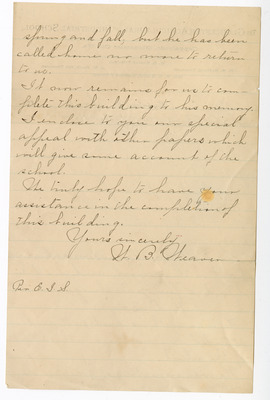 spring and fall but he has been
called home no more to return
to us.
It now remains for us to com-
plete this building to his memory
I enclose to you our special
appeal with other papers which
will give some account of the
school.
We truly hope to have your
assistance in the completion of
this building.
Yours sincerely
W. B. Weaver
Per O. I. S